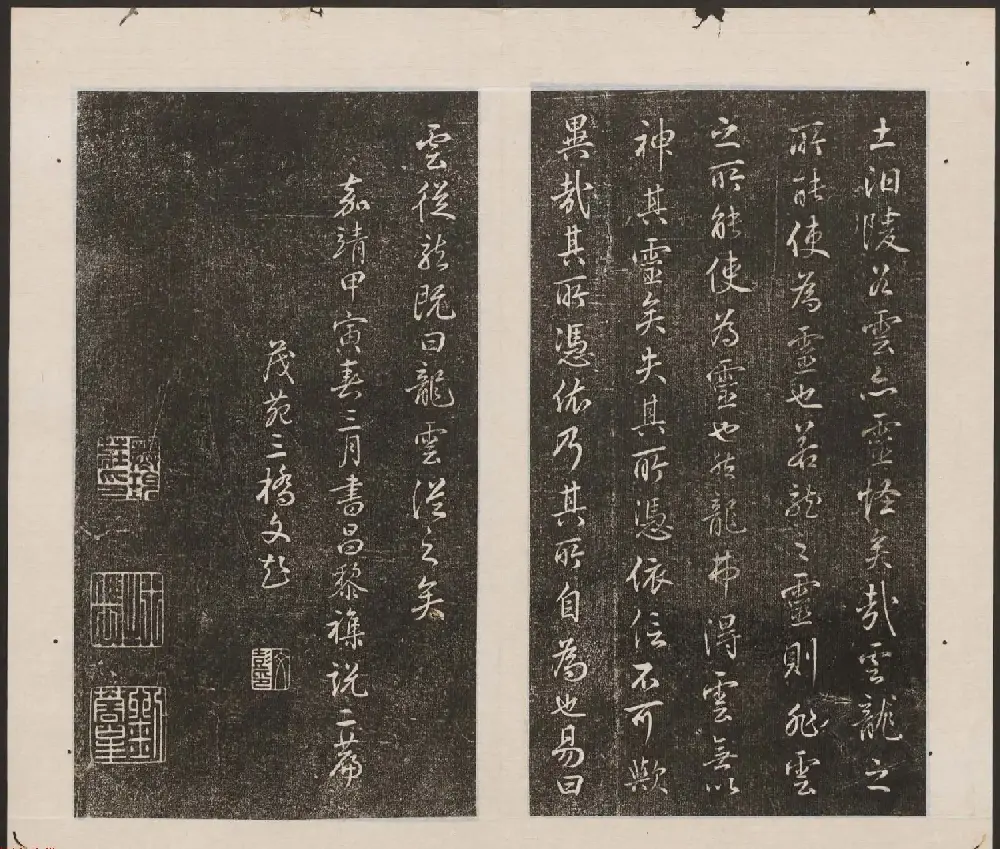 土汩陵谷雲亦靈怪矣哉雲龍之
所能使為靈也若龍之靈則非雲
之所能使為靈也然龍弗得雲無以
神其靈矣失其所憑依信不可歟
異哉其所憑依乃其所自為也易曰
雲從龍既曰龍雲從之矣
嘉靖甲寅春三月書昌黎襍説二篇
茂苑三橋文彭
文彭印